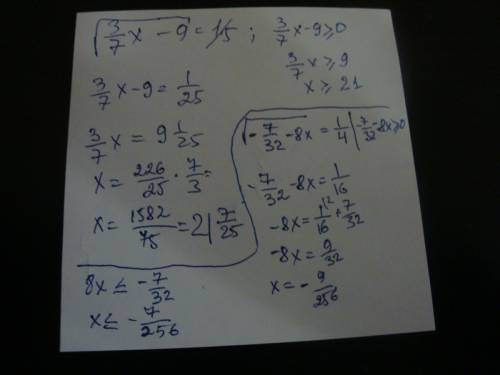 √(3/7 x − 9) = 1/5 ; 3/7 x − 9 ≥ 0
3/7 x ≥ 9
x ≥ 21
3/7 x − 9 = 1/25
3/7 x = 9 1/25
x = 226/25 · 7/3 =
x = 1582/75 = 21 7/25
8x ≤ −7/32
x ≤ −7/256
√(−7/32 − 8x) = 1/4 | −7/32 − 8x ≥ 0
−7/32 − 8x = 1/16
−8x = 1/16 ² + 7/32
−8x = 9/32
x = −9/256